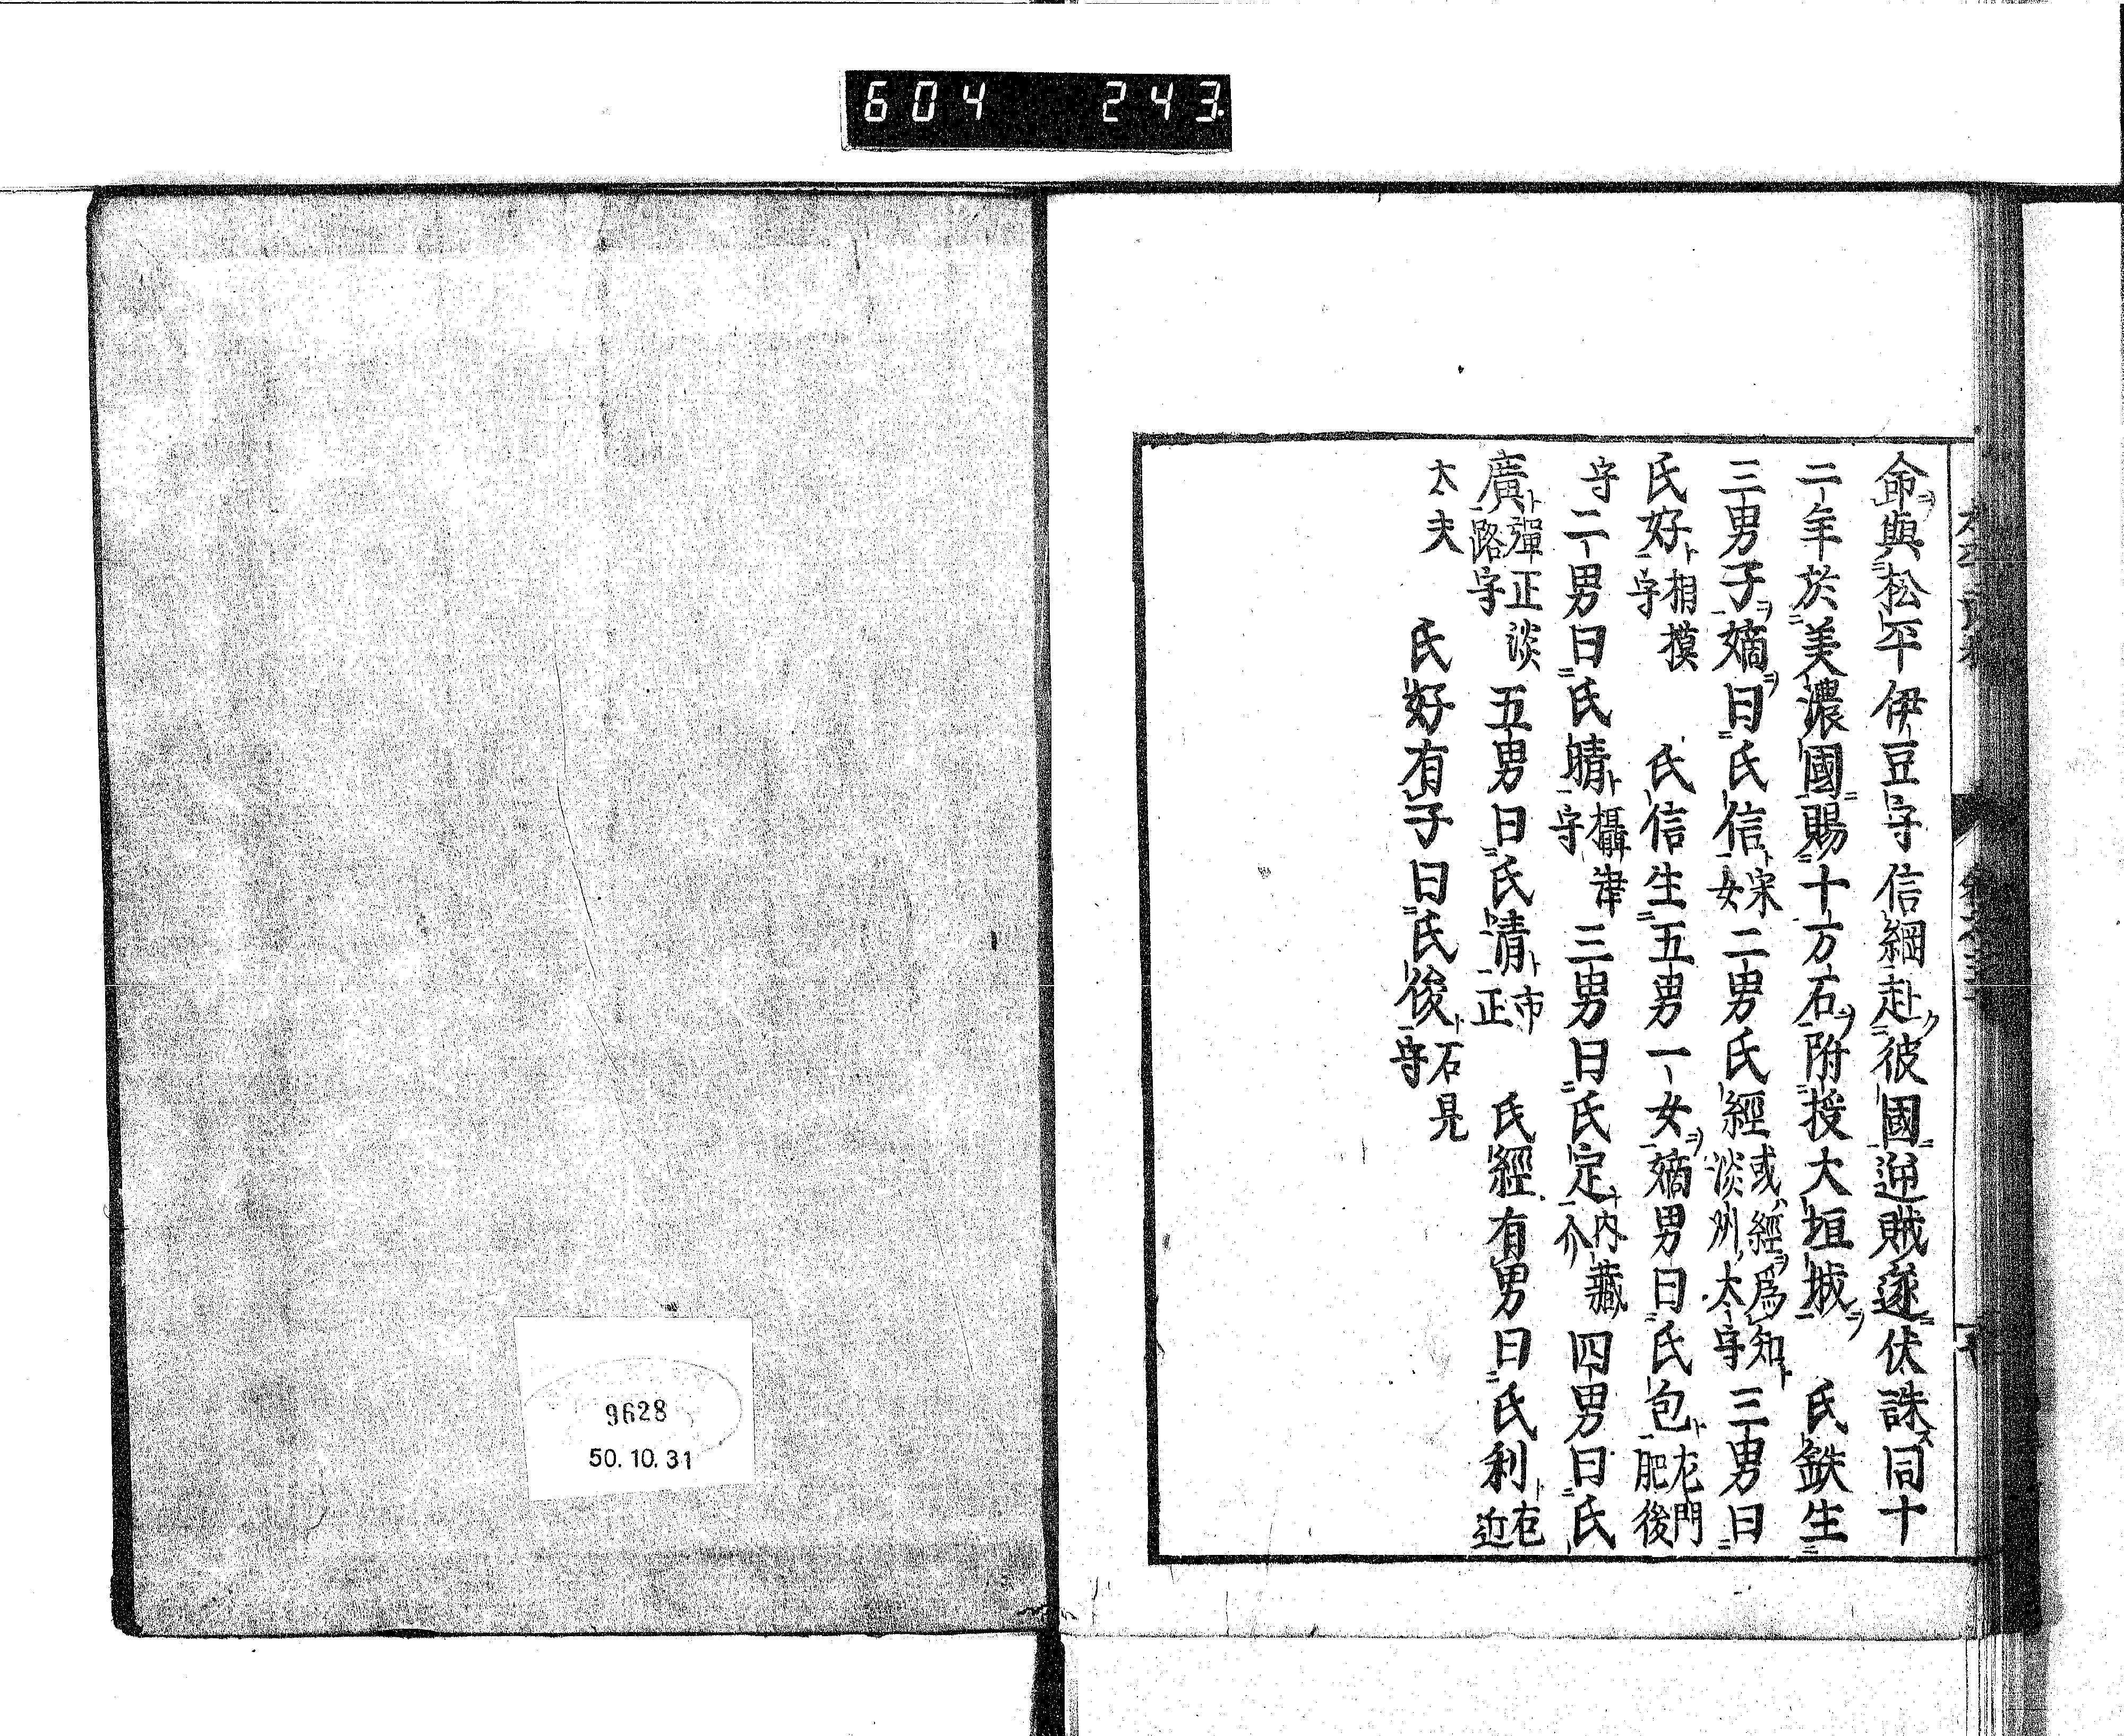 604 243.
命與松平伊豆守信綱赴彼國逆賊遂伏誅同十
二年於美濃國賜十万石附授大垣城 氏鉄生
三男子嫡曰氏信宋女二男氏經或經爲知淡州太守三男曰
氏好相摸守 氏信生五男一女嫡男曰氏包左門肥後
守二男曰氏晴攝津守三男曰氏定内藏介四男曰氏
廣彈正淡路守五男曰氏清市正 氏經有男曰氏利右近
太夫 氏好有子曰氏俊石見守
9628
50.10.31